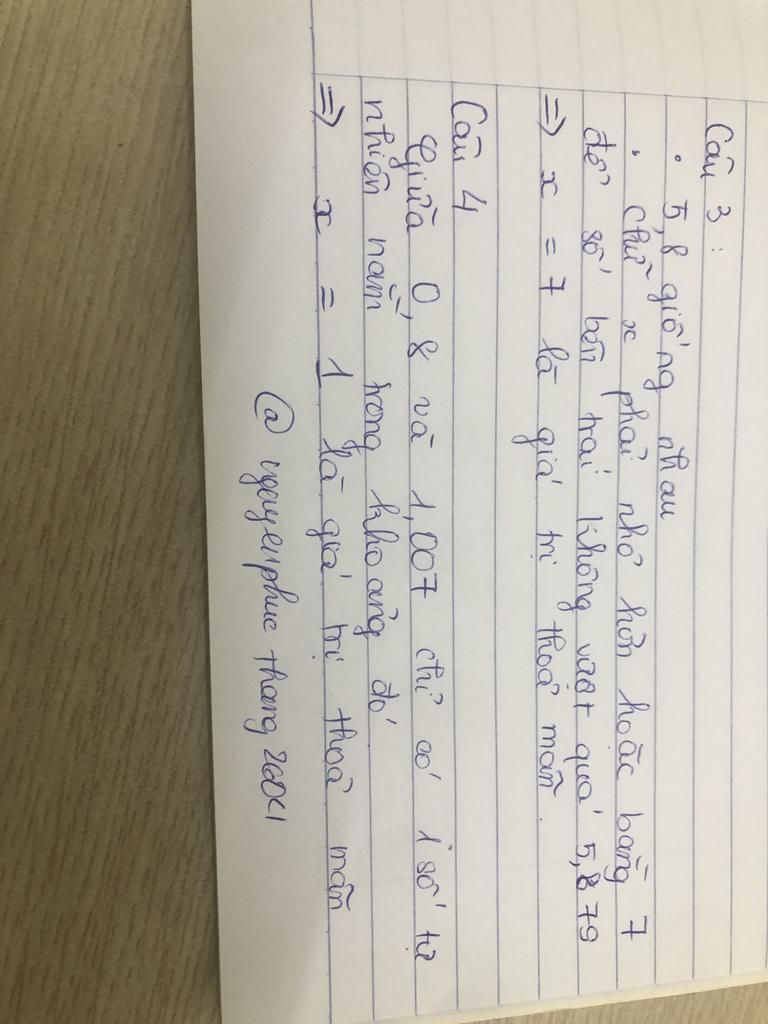 Câu 3 :
• 5,8 giống nhau
• chữ x phải nhỏ hơn hoặc bằng 7
để số bên trái không vượt quá 5,879
=> x = 7 là giá trị thoả mãn
Câu 4
Giữa 0,8 và 1,007 chỉ có 1 số tự
nhiên nằm trong khoảng đó
=> x = 1 là giá trị thoả mãn